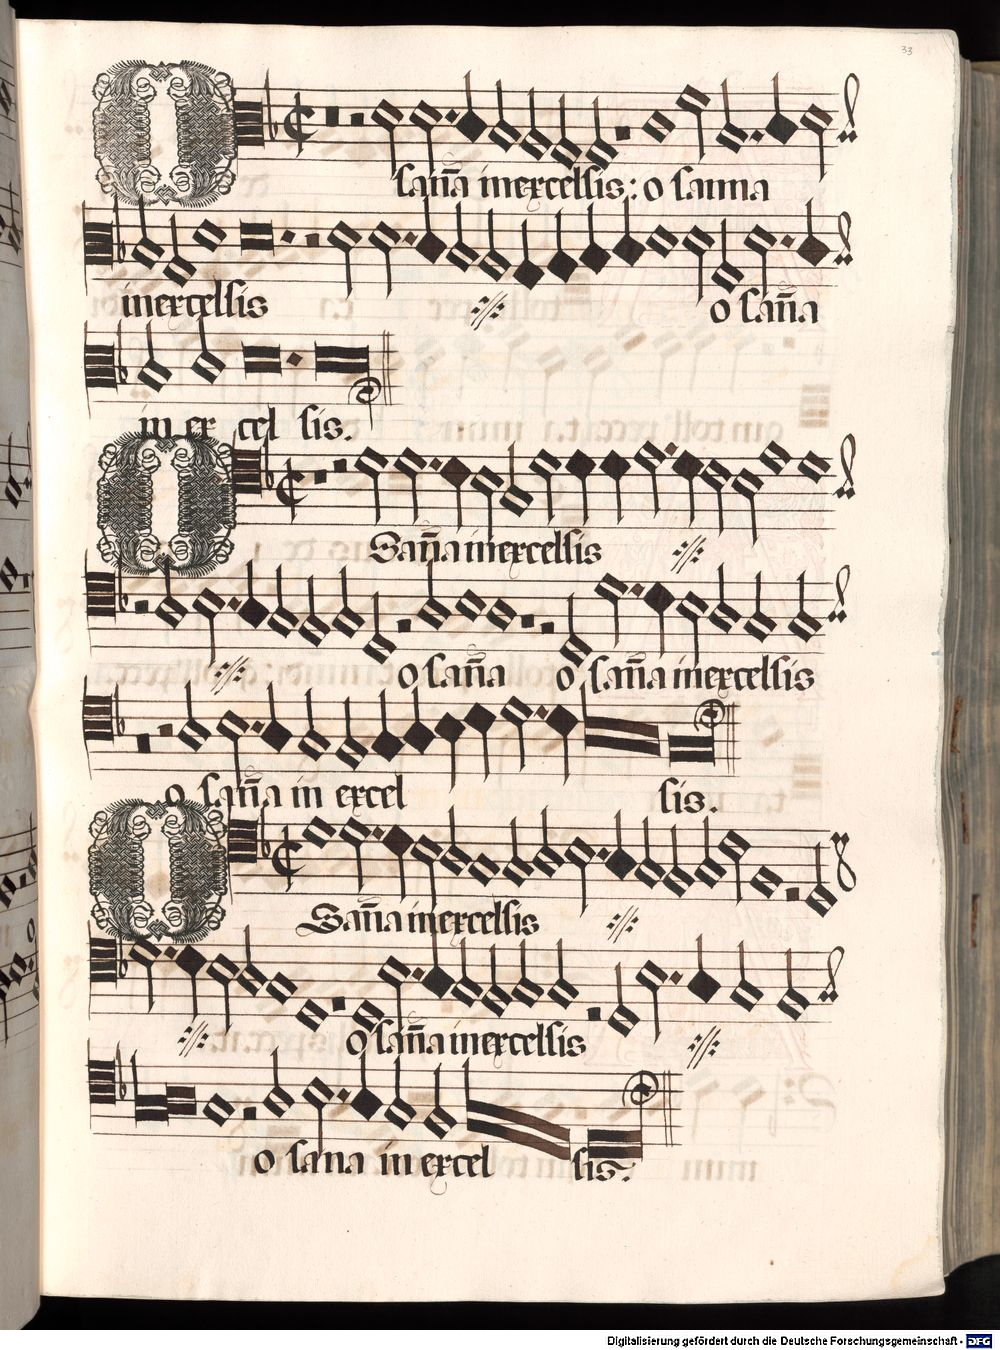 33
O san̄a in excelsis: o sanna
in excelsis o san̄a
in ex cel sis.
O San̄a in excelsis
o san̄a o san̄a in excelsis
o san̄a in excel sis.
O San̄a in excelsis
o san̄a in excelsis
o sana in excel sis.
Digitalisierung gefördert durch die Deutsche Forschungsgemeinschaft - DFG